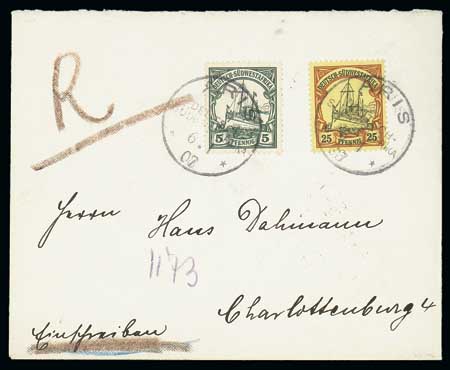 R
DEUTSCH-SÜDWESTAFRIKA
5 PFENNIG 5
DEUTSCH-SÜDWESTAFRIKA
25 PFENNIG 25
ARIS
6
07
ARIS
07
Herrn Hans Dahmann
1173
Charlottenburg 4
Einschreiben